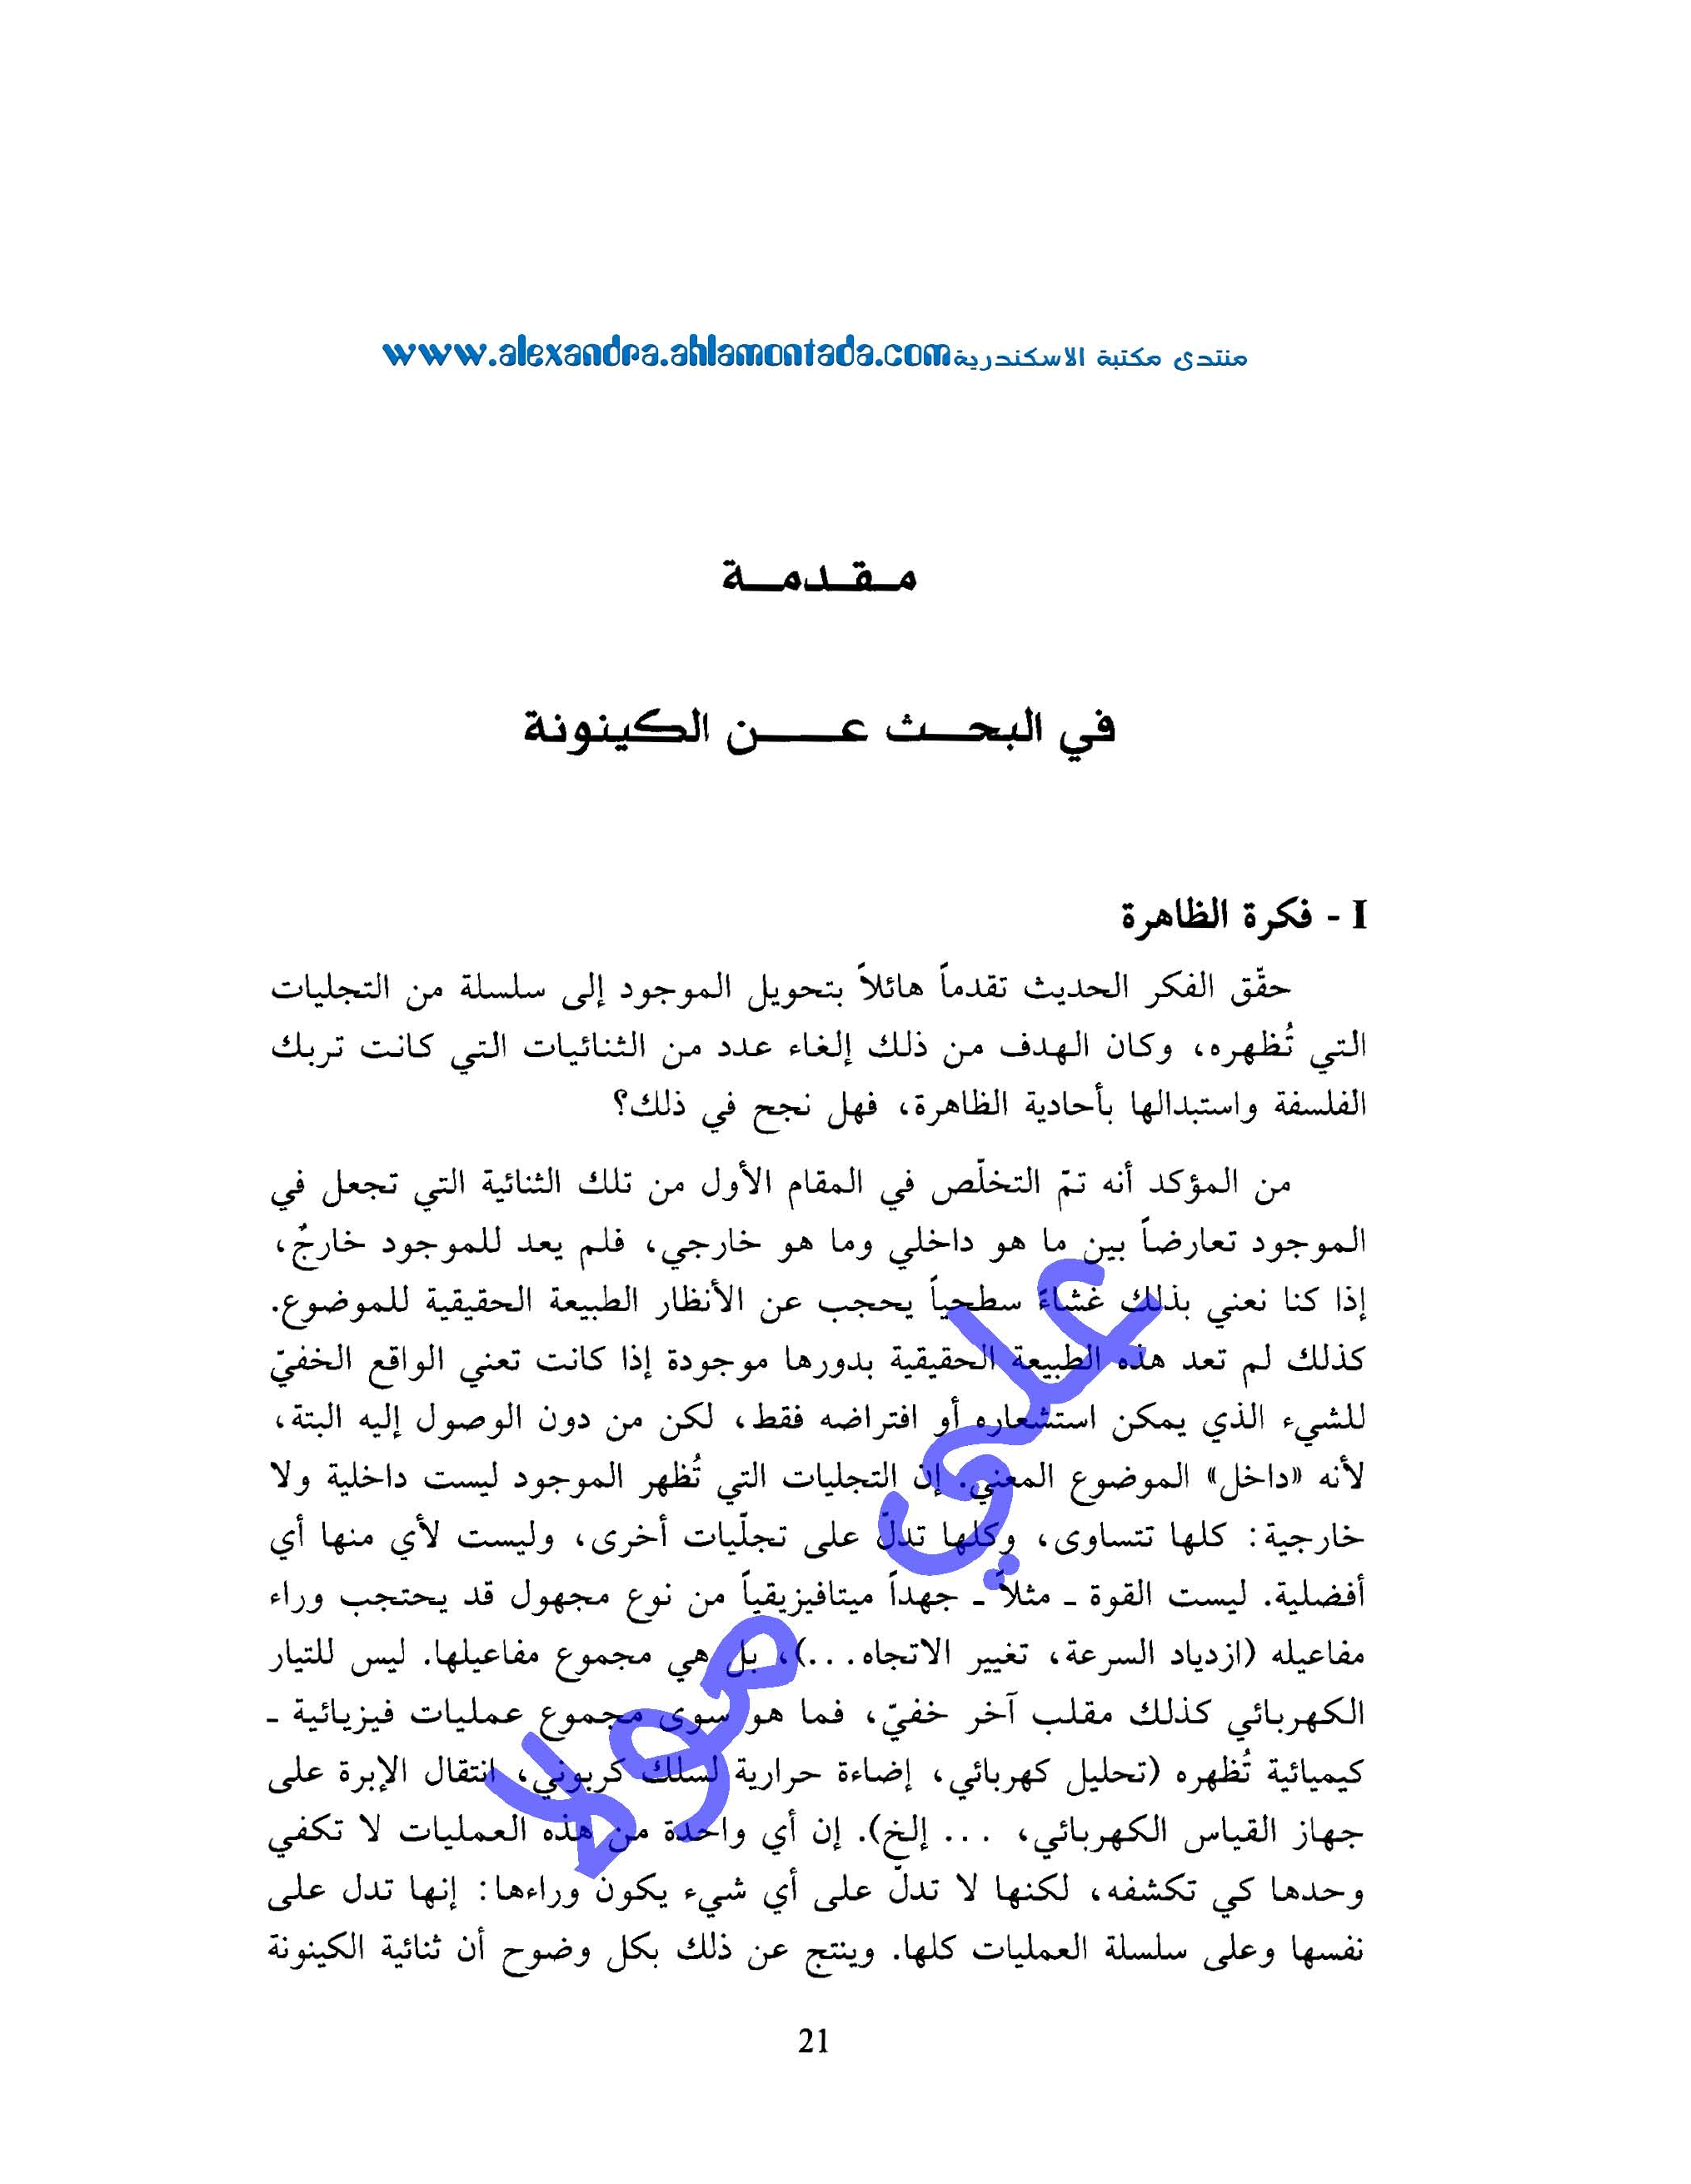 منتدى مكتبة الاسكندرية www.alexandra.ahlamontada.com
مقدمة
في البحث عن الكينونة
I - فكرة الظاهرة
حقّق الفكر الحديث تقدماً هائلاً بتحويل الموجود إلى سلسلة من التجليات
التي تُظهره، وكان الهدف من ذلك إلغاء عدد من الثنائيات التي كانت تربك
الفلسفة واستبدالها بأحادية الظاهرة، فهل نجح في ذلك؟
من المؤكد أنه تمّ التخلّص في المقام الأول من تلك الثنائية التي تجعل في
الموجود تعارضاً بين ما هو داخلي وما هو خارجي، فلم يعد للموجود خارجٌ،
إذا كنا نعني بذلك غشاءً سطحياً يحجب عن الأنظار الطبيعة الحقيقية للموضوع.
كذلك لم تعد هذه الطبيعة الحقيقية بدورها موجودة إذا كانت تعني الواقع الخفيّ
للشيء الذي يمكن استشعاره أو افتراضه فقط، لكن من دون الوصول إليه البتة،
لأنه «داخل» الموضوع المعني. إن التجليات التي تُظهر الموجود ليست داخلية ولا
خارجية: كلها تتساوى، وكلها تدلّ على تجلّيات أخرى، وليست لأي منها أي
أفضلية. ليست القوة ـ مثلاً ـ جهداً ميتافيزيقياً من نوع مجهول قد يحتجب وراء
مفاعيله (ازدياد السرعة، تغيير الاتجاه...)، بل هي مجموع مفاعيلها. ليس للتيار
الكهربائي كذلك مقلب آخر خفيّ، فما هو سوى مجموع عمليات فيزيائية ـ
كيميائية تُظهره (تحليل كهربائي، إضاءة حرارية لسلك كربوني، انتقال الإبرة على
جهاز القياس الكهربائي، ... إلخ). إن أي واحدة من هذه العمليات لا تكفي
وحدها كي تكشفه، لكنها لا تدلّ على أي شيء يكون وراءها: إنها تدل على
نفسها وعلى سلسلة العمليات كلها. وينتج عن ذلك بكل وضوح أن ثنائية الكينونة
علي مولا
21